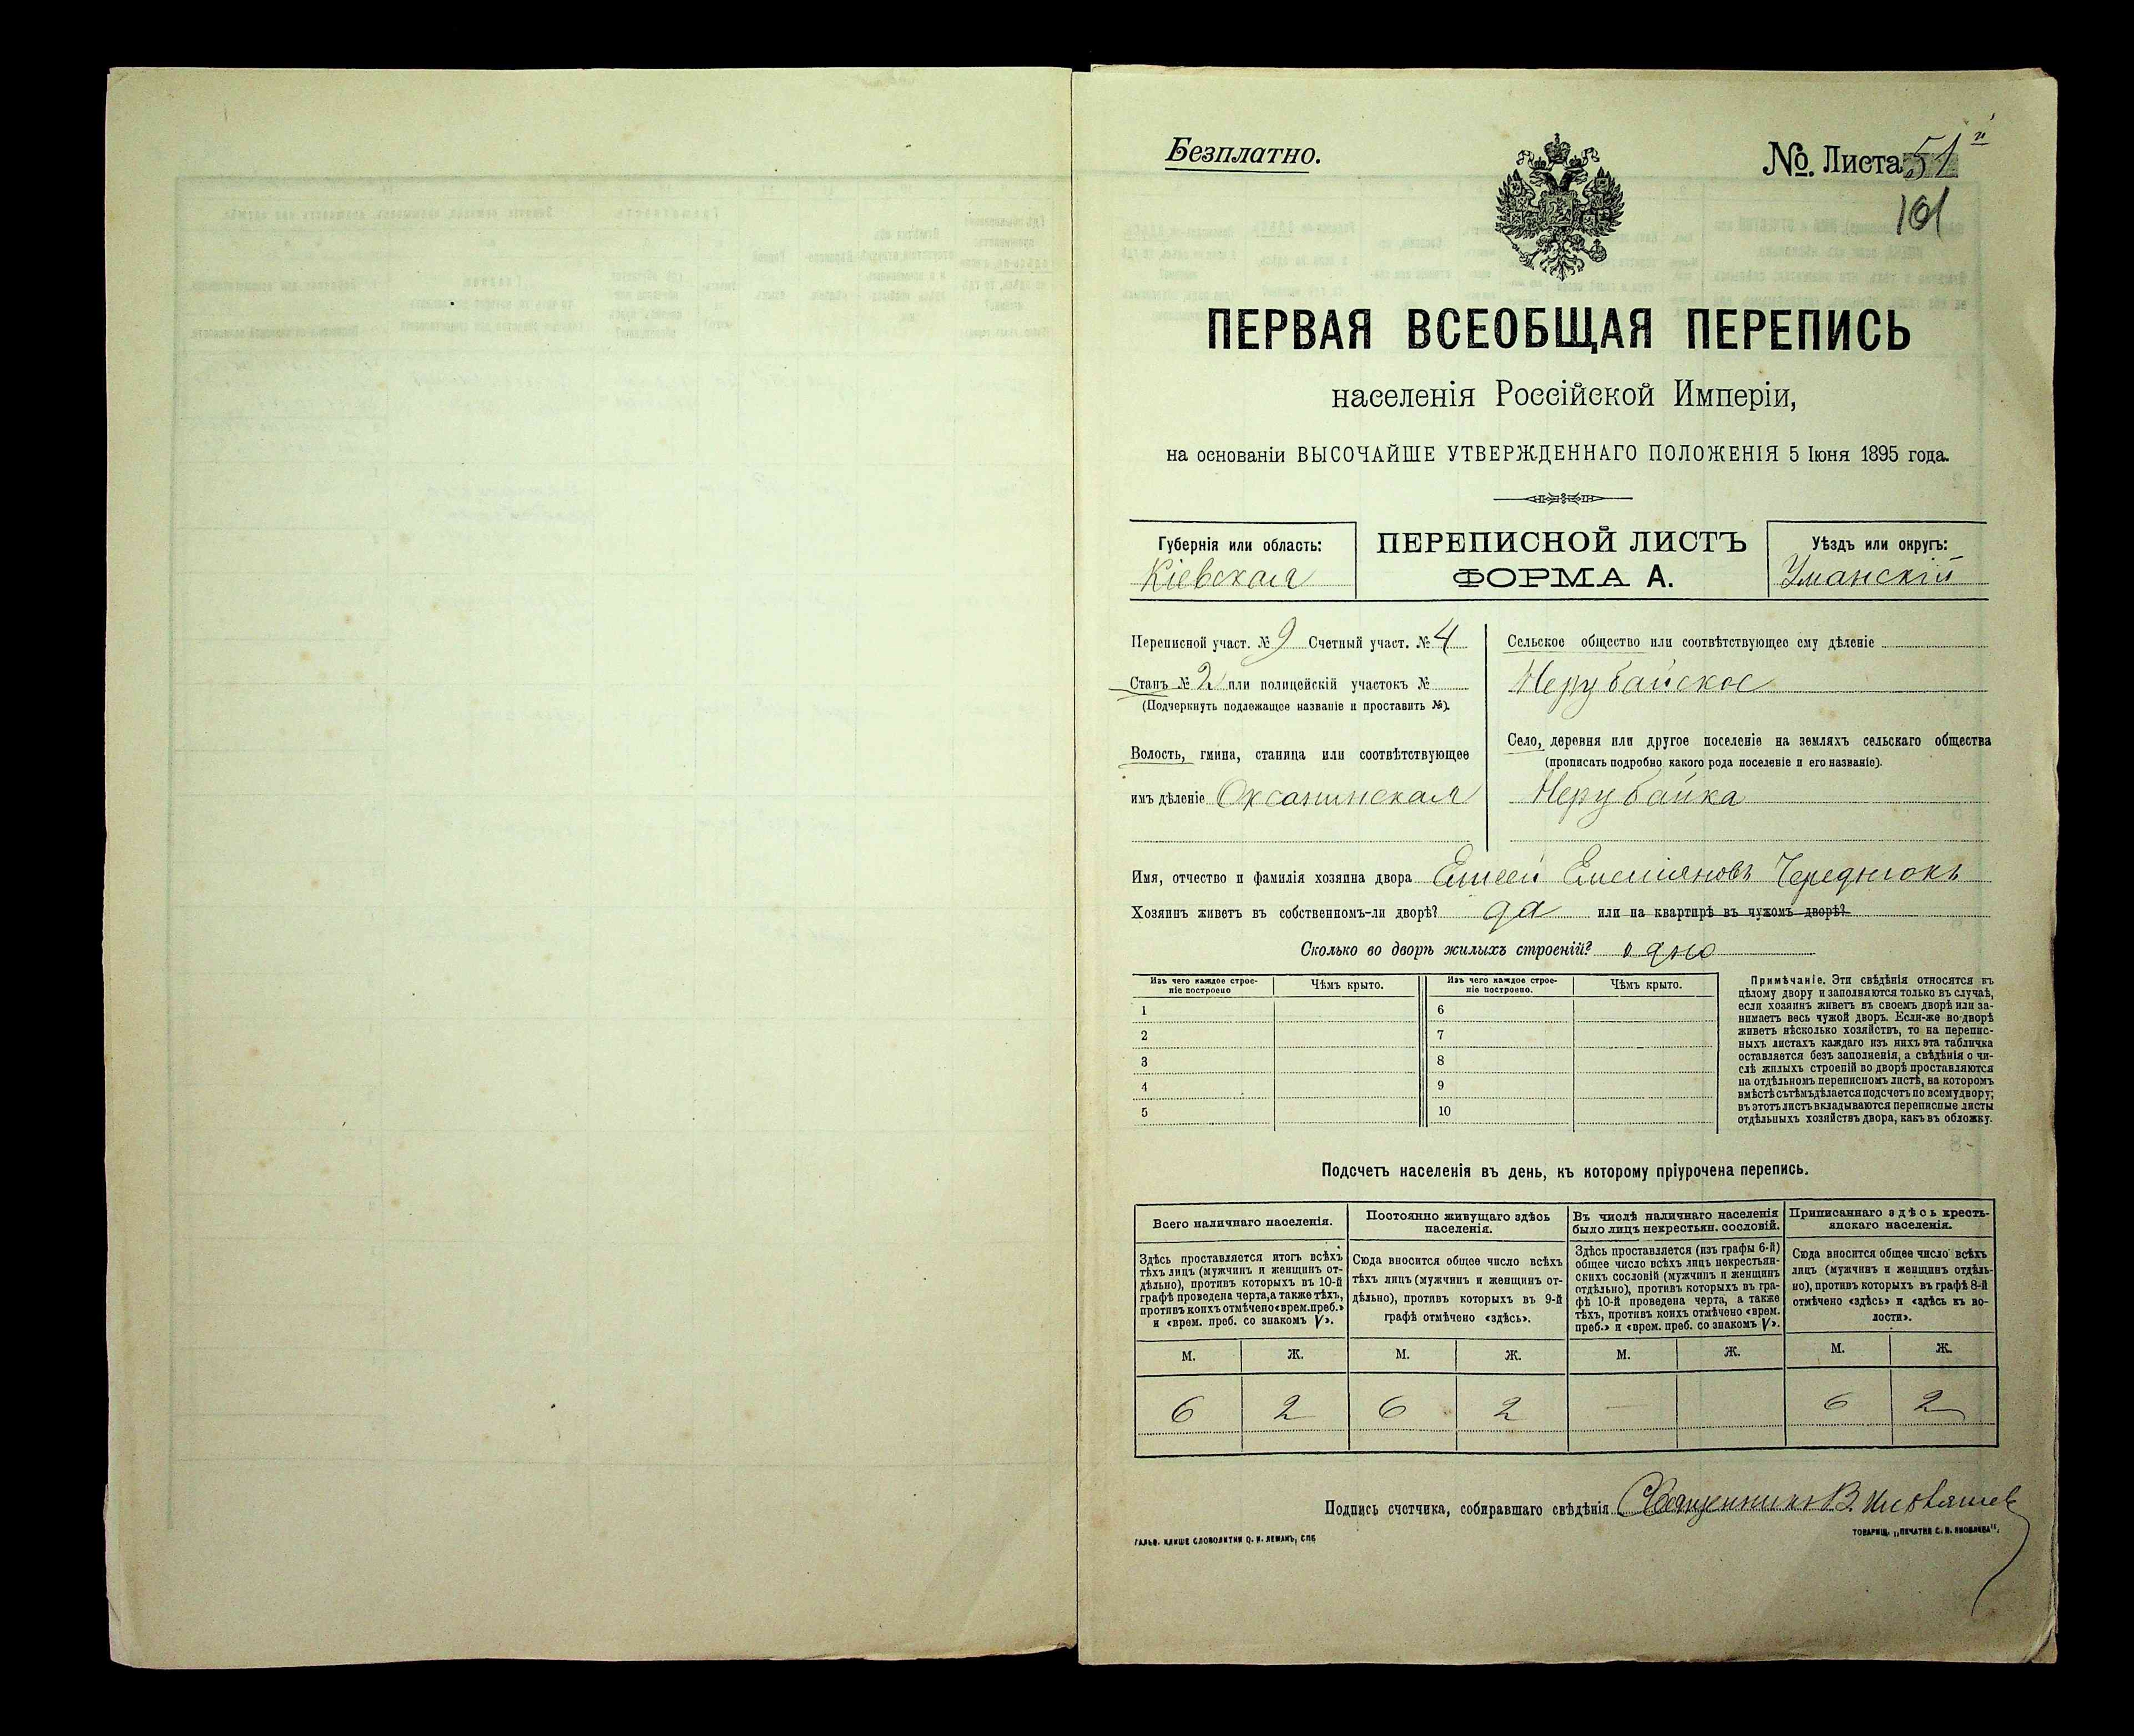 Безплатно.
№. Листа 51й
101
ПЕРВАЯ ВСЕОБЩАЯ ПЕРЕПИСЬ
населенія Россійской Имперіи,
на основаніи ВЫСОЧАЙШЕ УТВЕРЖДЕННАГО ПОЛОЖЕНІЯ 5 Іюня 1895 года.
Губернія или область:
Кіевская
ПЕРЕПИСНОЙ ЛИСТЪ
ФОРМА А.
Уѣздъ или округъ:
Уманскій
Переписной участ. № 9 Счетный участ. № 4
Станъ № 2 или полицейскій участокъ №
(Подчеркнуть подлежащее названіе и проставить №).
Волость, гмина, станица или соотвѣтствующее
имъ дѣленіе Оксанинская
Сельское общество или соотвѣтствующее ему дѣленіе
Нерубайское
Село, деревня или другое поселеніе на земляхъ сельскаго общества
(прописать подробно какого рода поселеніе и его названіе).
Нерубайка
Имя, отчество и фамилія хозяина двора Елисей Емельяновъ Чередникъ
Хозяинъ живетъ въ собственномъ-ли дворѣ? да или на квартирѣ въ чужомъ дворѣ?
Сколько во дворѣ жилыхъ строеній? одно
Изъ чего каждое строе-
ніе построено
Чѣмъ крыто.
Изъ чего каждое строе-
ніе построено.
Чѣмъ крыто.
1
2
3
4
5
6
7
8
9
10
Примѣчаніе. Эти свѣдѣнія относятся къ
цѣлому двору и заполняются только въ случаѣ,
если хозяинъ живетъ въ своемъ дворѣ или за-
нимаетъ весь чужой дворъ. Если-же во дворѣ
живетъ нѣсколько хозяйствъ, то на перепис-
ныхъ листахъ каждаго изъ нихъ эта табличка
оставляется безъ заполненія, а свѣдѣнія о чи-
слѣ жилыхъ строеній во дворѣ проставляются
на отдѣльномъ переписномъ листѣ, на которомъ
вмѣстѣ съ тѣмъ дѣлается подсчетъ по всему двору;
въ этотъ листъ вкладываются переписные листы
отдѣльныхъ хозяйствъ двора, какъ въ обложку.
Подсчетъ населенія въ день, къ которому пріурочена перепись.
Всего наличнаго населенія.
Здѣсь проставляется итогъ всѣхъ
тѣхъ лицъ (мужчинъ и женщинъ от-
дѣльно), противъ которыхъ въ 10-й
графѣ проведена черта, а также тѣхъ,
противъ коихъ отмѣчено «врем. преб.»
и «врем. преб. со знакомъ V».
Постоянно живущаго здѣсь
населенія.
Сюда вносится общее число всѣхъ
тѣхъ лицъ (мужчинъ и женщинъ от-
дѣльно), противъ которыхъ въ 9-й
графѣ отмѣчено «здѣсь».
Въ числѣ наличнаго населенія
было лицъ некрестьян. сословій.
Здѣсь проставляется (изъ графы 6-й)
общее число всѣхъ лицъ некрестьян-
скихъ сословій (мужчинъ и женщинъ
отдѣльно), противъ которыхъ въ гра-
фѣ 10-й проведена черта, а также
тѣхъ, противъ коихъ отмѣчено «врем.
преб.» и «врем. преб. со знакомъ V».
Приписаннаго здѣсь кресть-
янскаго населенія.
Сюда вносится общее число всѣхъ
лицъ (мужчинъ и женщинъ отдѣль-
но), противъ которыхъ въ графѣ 8-й
отмѣчено «здѣсь» и «здѣсь въ во-
лости».
М. Ж. М. Ж. М. Ж. М. Ж.
6 2 6 2 — 6 2
Подпись счетчика, собиравшаго свѣдѣнія Священникъ В.
ГАЛЬВ. КЛИШЕ СЛОВОЛИТНИ О. И. ЛЕМАНЪ, СПБ
ТОВАРИЩ. „ПЕЧАТНЯ С. П. ЯКОВЛЕВА“.